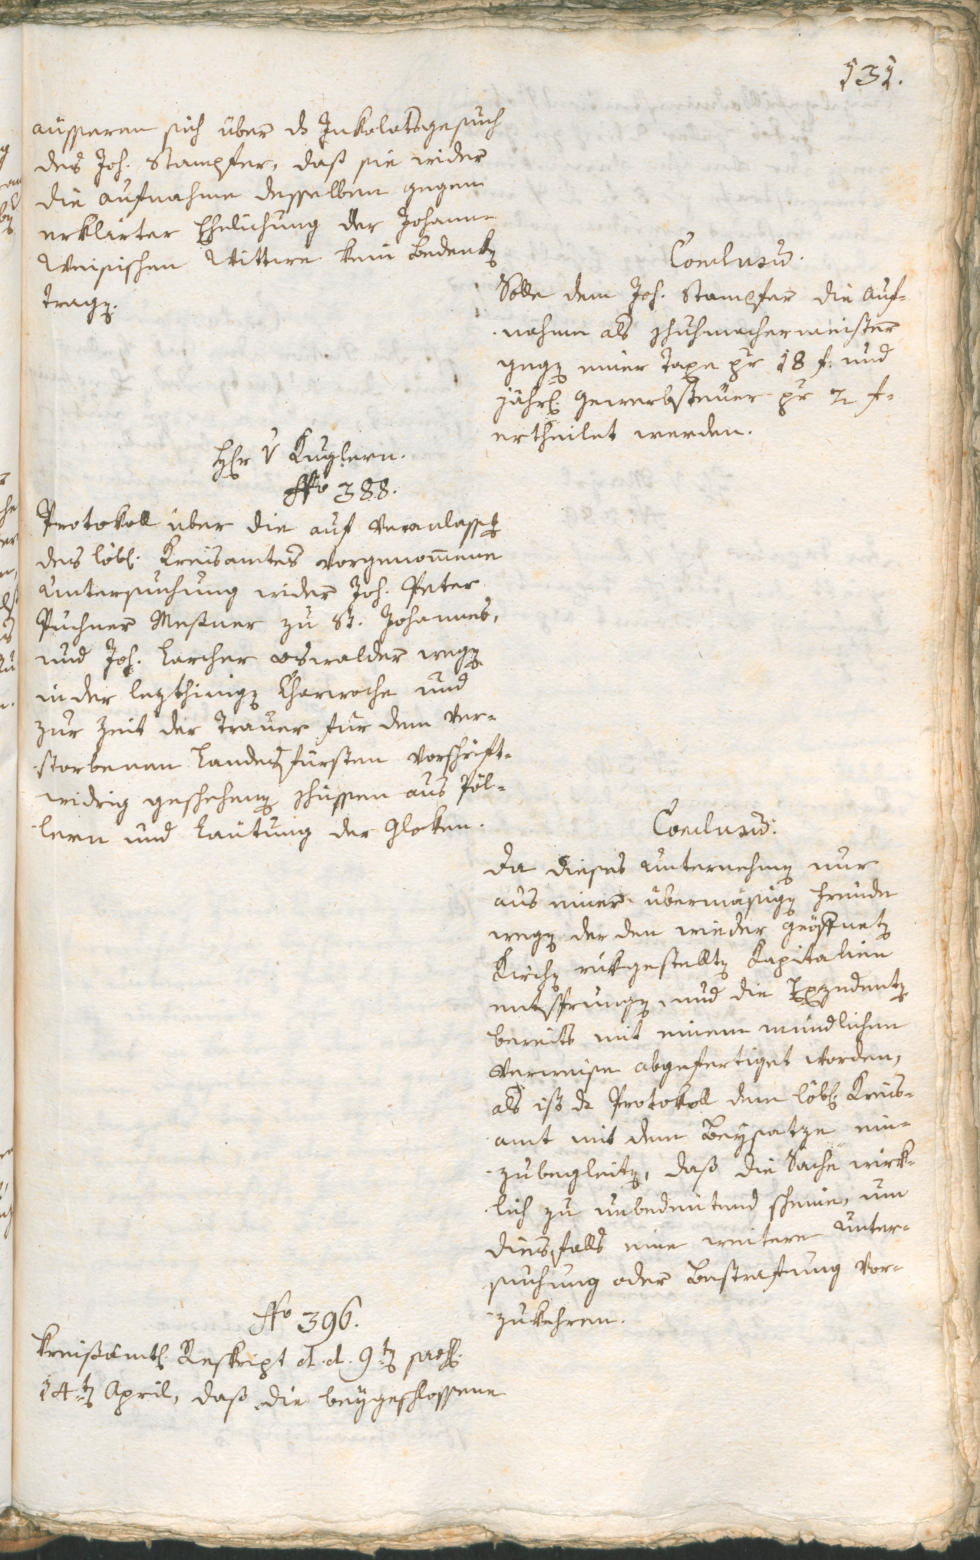 131.
äusseren sich über ds Inkolatsgesuch
des Joh. Stampfer, daß sie wider
die Aufnahme desselben gegen
erklärter Ehelichung der Johann-
Weisischen Wittwe kein Bedenken
tragen.
Conclusum.
Solle dem Joh. Stampfer die Auf-
nahme als Schuhmachermeister
gegen einer Taxe pr 18 f. und
jährl. Gewerbsteuer pr 2 f.
ertheilet werden.
Hr v Kuglern.
No 388.
Protokoll über die auf Veranlassung
des löbl. Kreisamtes vorgenommene
Untersuchung wider Joh. Peter
Puchner Messner zu St. Johannes,
und Joh. Larcher Oswalder wegen
in der letzthinigen Charwoche und
zur Zeit der Trauer für dem ver-
storbenen Landesfürsten vorschrift-
widrig geschehenen Schüssen aus Pöl-
lern und Läutung der Gloken.
Conclusum:
Da dieses Unternehmen nur
aus einer übermäsigen Freude
wegen der den wieder geöffneten
Kirchen rükgestellten Kapitalien
entsprungen und die Exzedenten
bereits mit einem mündlichen
Verweise abgefertiget worden,
als ist ds Protokoll dem löbl. Kreis-
amt mit dem Beysatze ein-
zubegleiten, daß die Sache wirk-
lich zu unbedeutend scheine, um
diesfalls eine weitere Unter-
suchung oder Bestrafung vor-
zukehren.
No 396.
Kreisämtl. Reskript d. d. 9ten praes.
14ten April, daß die beygeschlossene